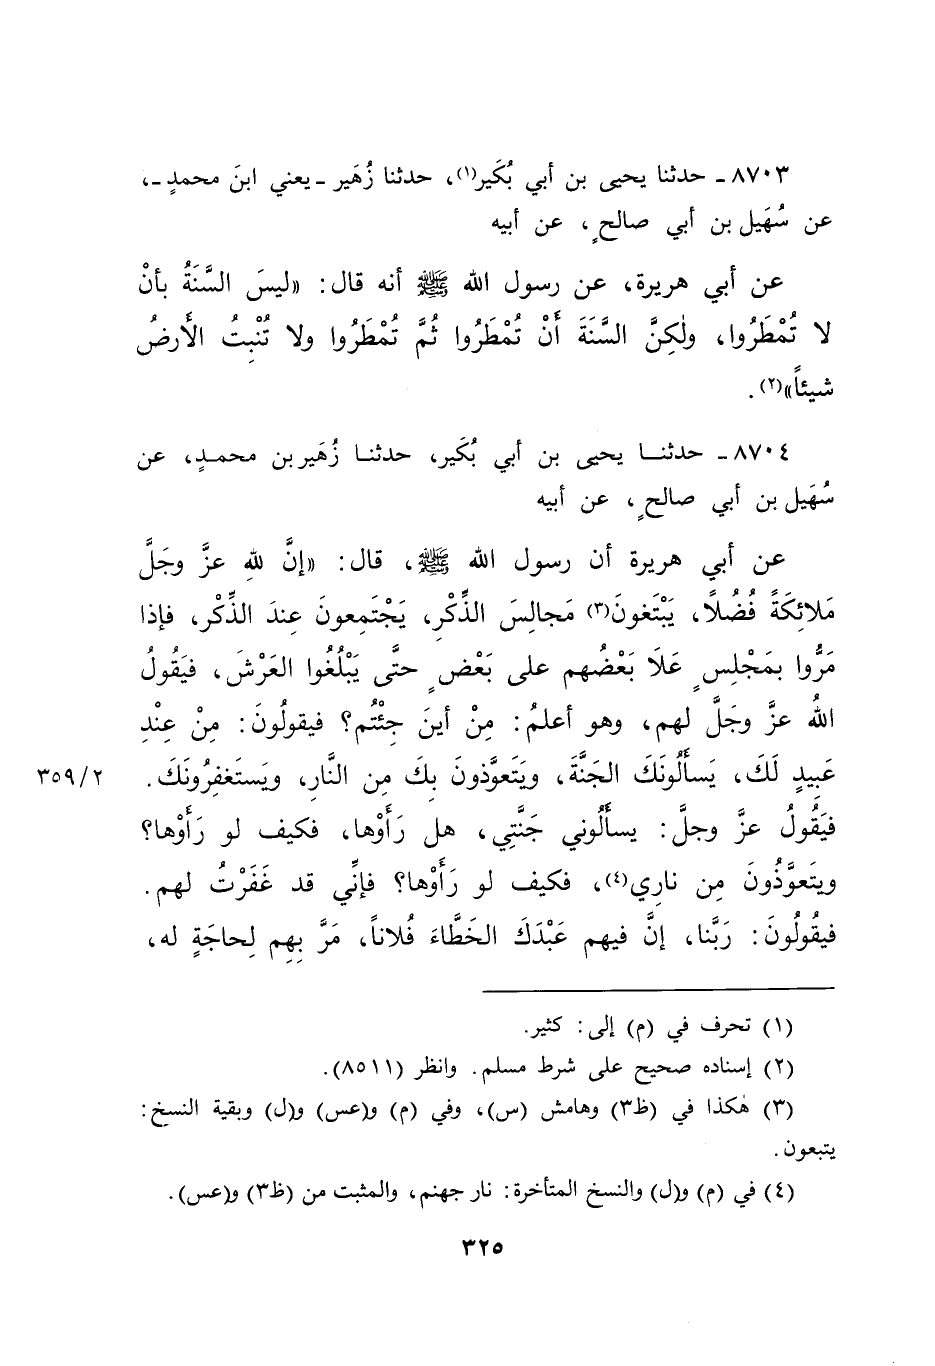 ٨٧٠٣ ـ حدثنا يحيى بن أبي بُكَير(١)، حدثنا زُهَير ـ يعني ابنَ محمدٍ ـ،
عن سُهَيل بن أبي صالحٍ، عن أبيه
عن أبي هريرة، عن رسول الله ﷺ أنه قال: «ليسَ السَّنَةُ بأنْ
لا تُمْطَرُوا، ولٰكِنَّ السَّنَةَ أَنْ تُمْطَرُوا ثُمَّ تُمْطَرُوا ولا تُنْبِتُ الأَرضُ
شيئاً»(٢).
٨٧٠٤ ـ حدثنا يحيى بن أبي بُكَير، حدثنا زُهَير بن محمدٍ، عن
سُهَيل بن أبي صالحٍ، عن أبيه
عن أبي هريرة أن رسول الله ﷺ، قال: «إنَّ للهِ عزَّ وجَلَّ
مَلائِكَةً فُضُلًا، يَبْتَغونَ(٣) مَجالِسَ الذِّكْرِ، يَجْتَمِعونَ عِندَ الذِّكْر، فإذا
مَرُّوا بمَجْلِسٍ عَلَا بَعْضُهم على بَعْضٍ حتَّى يَبْلُغُوا العَرْشَ، فيَقُولُ
اللهُ عزَّ وجَلَّ لهم، وهو أعلمُ: مِنْ أينَ جِئْتُم؟ فيقولُونَ: مِنْ عِنْدِ
عَبِيدٍ لَكَ، يَسأَلُونَكَ الجَنَّةَ، ويَتَعوَّذونَ بِكَ مِن النَّار، ويَستَغفِرُونَكَ.
٣٥٩/٢
فيَقُولُ عزَّ وجلَّ: يسأَلُوني جَنَّتِي، هل رَأَوْها، فكيف لو رَأَوْها؟
ويتَعوَّذُونَ مِن نارِي(٤)، فكيف لو رَأَوْها؟ فإنِّي قد غَفَرْتُ لهم.
فيقُولُونَ: رَبَّنا، إنَّ فيهم عَبْدَكَ الخَطَّاءَ فُلاناً، مَرَّ بِهِم لِحاجَةٍ له،
(١) تحرف في (م) إلى: كثير.
(٢) إسناده صحيح على شرط مسلم. وانظر (٨٥١١).
(٣) هٰكذا في (ظ٣) وهامش (س)، وفي (م) و(عس) و(ل) وبقية النسخ:
يتبعون.
(٤) في (م) و(ل) والنسخ المتأخرة: نار جهنم، والمثبت من (ظ٣) و(عس).
٣٢٥